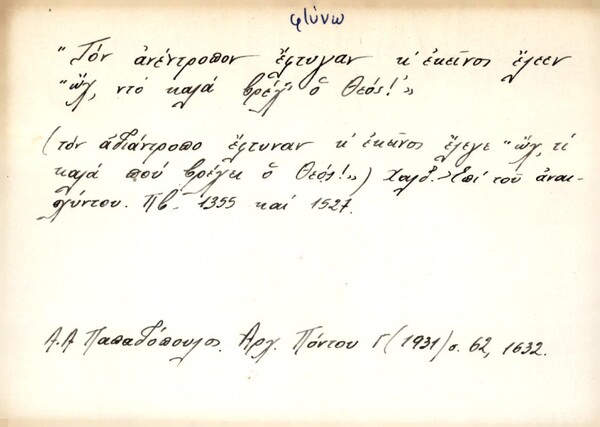 φτύνω
"Τὸν ἀνέντροπον ἔφτυναν κ' ἐκεῖνος ἔλεεν
"ὤχ, ντὸ καλὰ βρέχ' ὁ Θεός!"»
(τὸν ἀδιάντροπο ἔφτυναν κ' ἐκεῖνος ἔλεγε "ὤχ, τί
καλὰ ποὺ βρέχει ὁ Θεός!») Χαλδ. Ἐπὶ τοῦ ἀναι-
σχύντου. Πβ. 1355 καὶ 1527.
Α.Α Παπαδόπουλος. Ἀρχ. Πόντου Γ (1931) σ. 62, 1632.